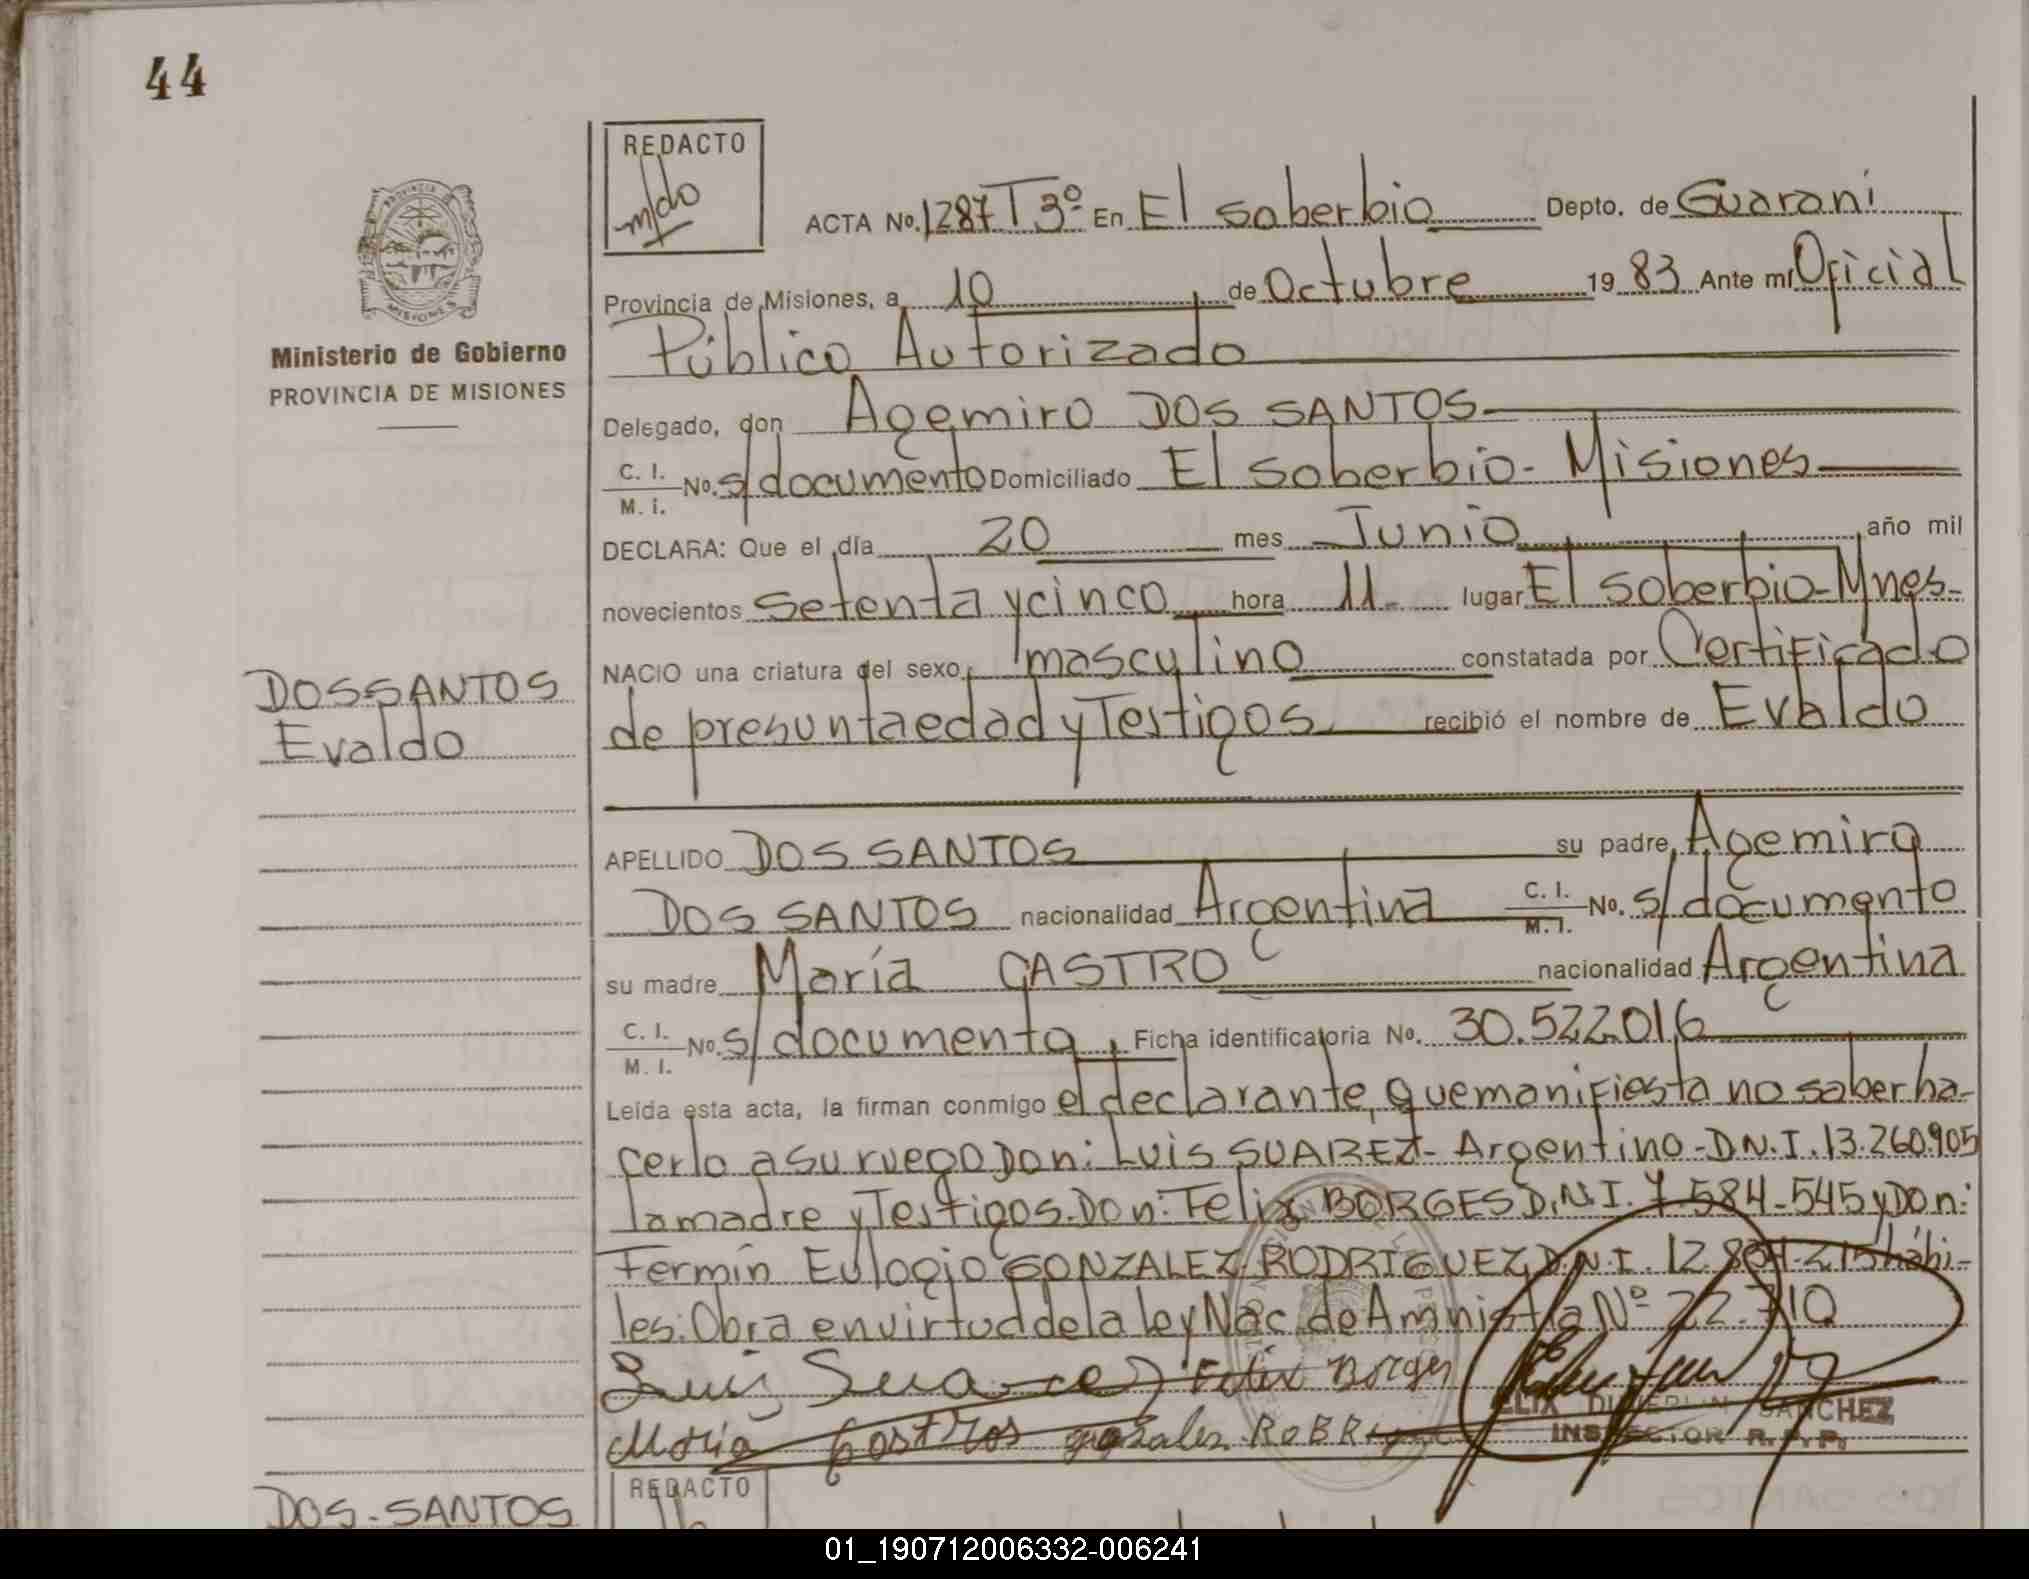 44
REDACTO
ACTA No. 1287 T 3º En El soberbio Depto. de Guaraní
Provincia de Misiones, a 10 de Octubre 19 83 Ante mí Oficial
Público Autorizado
Ministerio de Gobierno
PROVINCIA DE MISIONES
Delegado, don Agemiro DOS SANTOS
C. I.
M. I. No. s/documento Domiciliado El soberbio - Misiones
DECLARA: Que el día 20 mes Junio año mil
novecientos setenta y cinco hora 11 lugar El soberbio - Mnes-
NACIO una criatura del sexo masculino constatada por Certificado
DOS SANTOS
Evaldo
de presunta edad y Testigos recibió el nombre de Evaldo
APELLIDO DOS SANTOS su padre Agemiro
DOS SANTOS nacionalidad Argentina C. I.
M. I. No. s/documento
su madre María CASTRO nacionalidad Argentina
C. I.
M. I. No. s/documento, Ficha identificatoria No. 30.522.016
Leída esta acta, la firman conmigo el declarante, que manifiesta no saber ha-
cerlo a su ruego Don: Luis SUAREZ - Argentino - D.N.I. 13.260.905
la madre y Testigos. Don: Felix BORGES D.N.I. 7.584-545 y Don:
Fermín Eulogio GONZALEZ RODRIGUEZ, D.N.I. 12. hábi-
les: Obra en virtud de la ley Nac. de Amnistía Nº 22.710
Luis Suarez Felix Borges
Maria Castros gonzales RoBRi
SANCHEZ
INSPECTOR R. P. P.
REDACTO
DOS - SANTOS
01_190712006332-006241